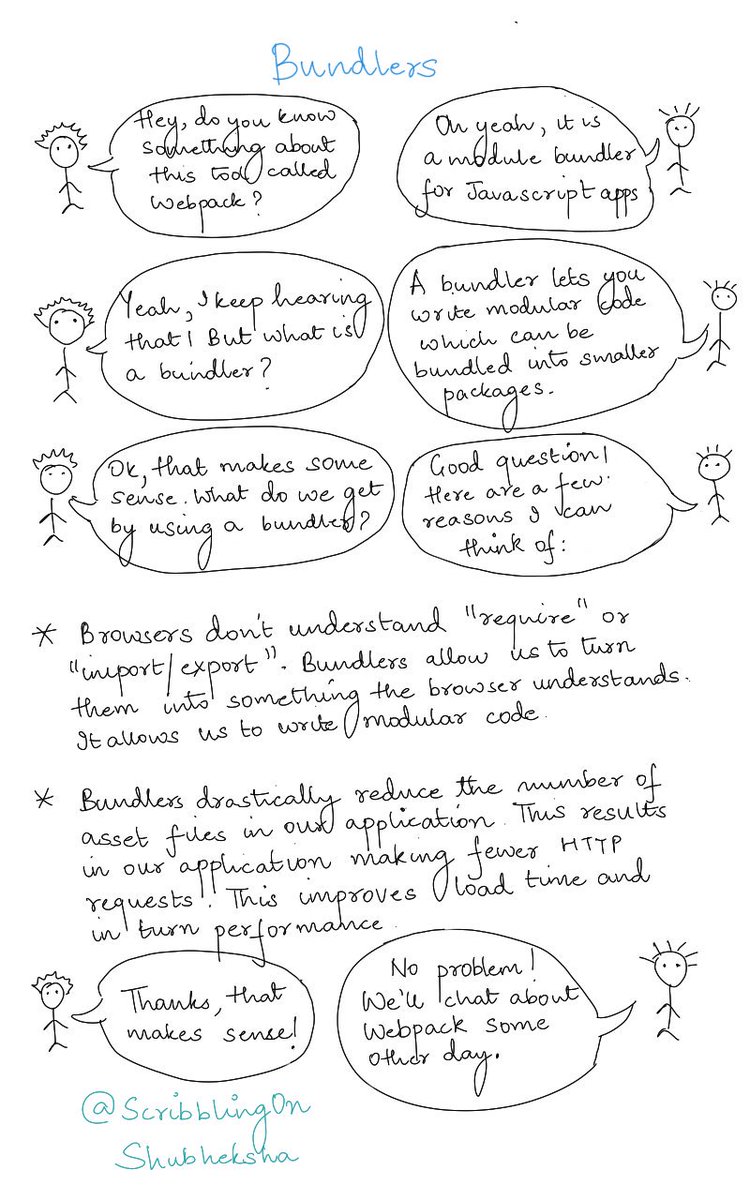 Bundlers
Hey, do you know
something about
this tool called
webpack?
Oh yeah, it is
a module bundler
for Javascript apps
Yeah, I keep hearing
that! But what is
a bundler?
A bundler lets you
write modular code
which can be
bundled into smaller
packages.
Ok, that makes some
sense. What do we get
by using a bundler?
Good question!
Here are a few
reasons I can
think of:
* Browsers don't understand "require" or
"import/export". Bundlers allow us to turn
them into something the browser understands.
It allows us to write modular code.
* Bundlers drastically reduce the number of
asset files in our application. This results
in our application making fewer HTTP
requests. This improves load time and
in turn performance.
Thanks, that
makes sense!
No problem!
We'll chat about
webpack some
other day.
@ScribblingOn
Shubheksha